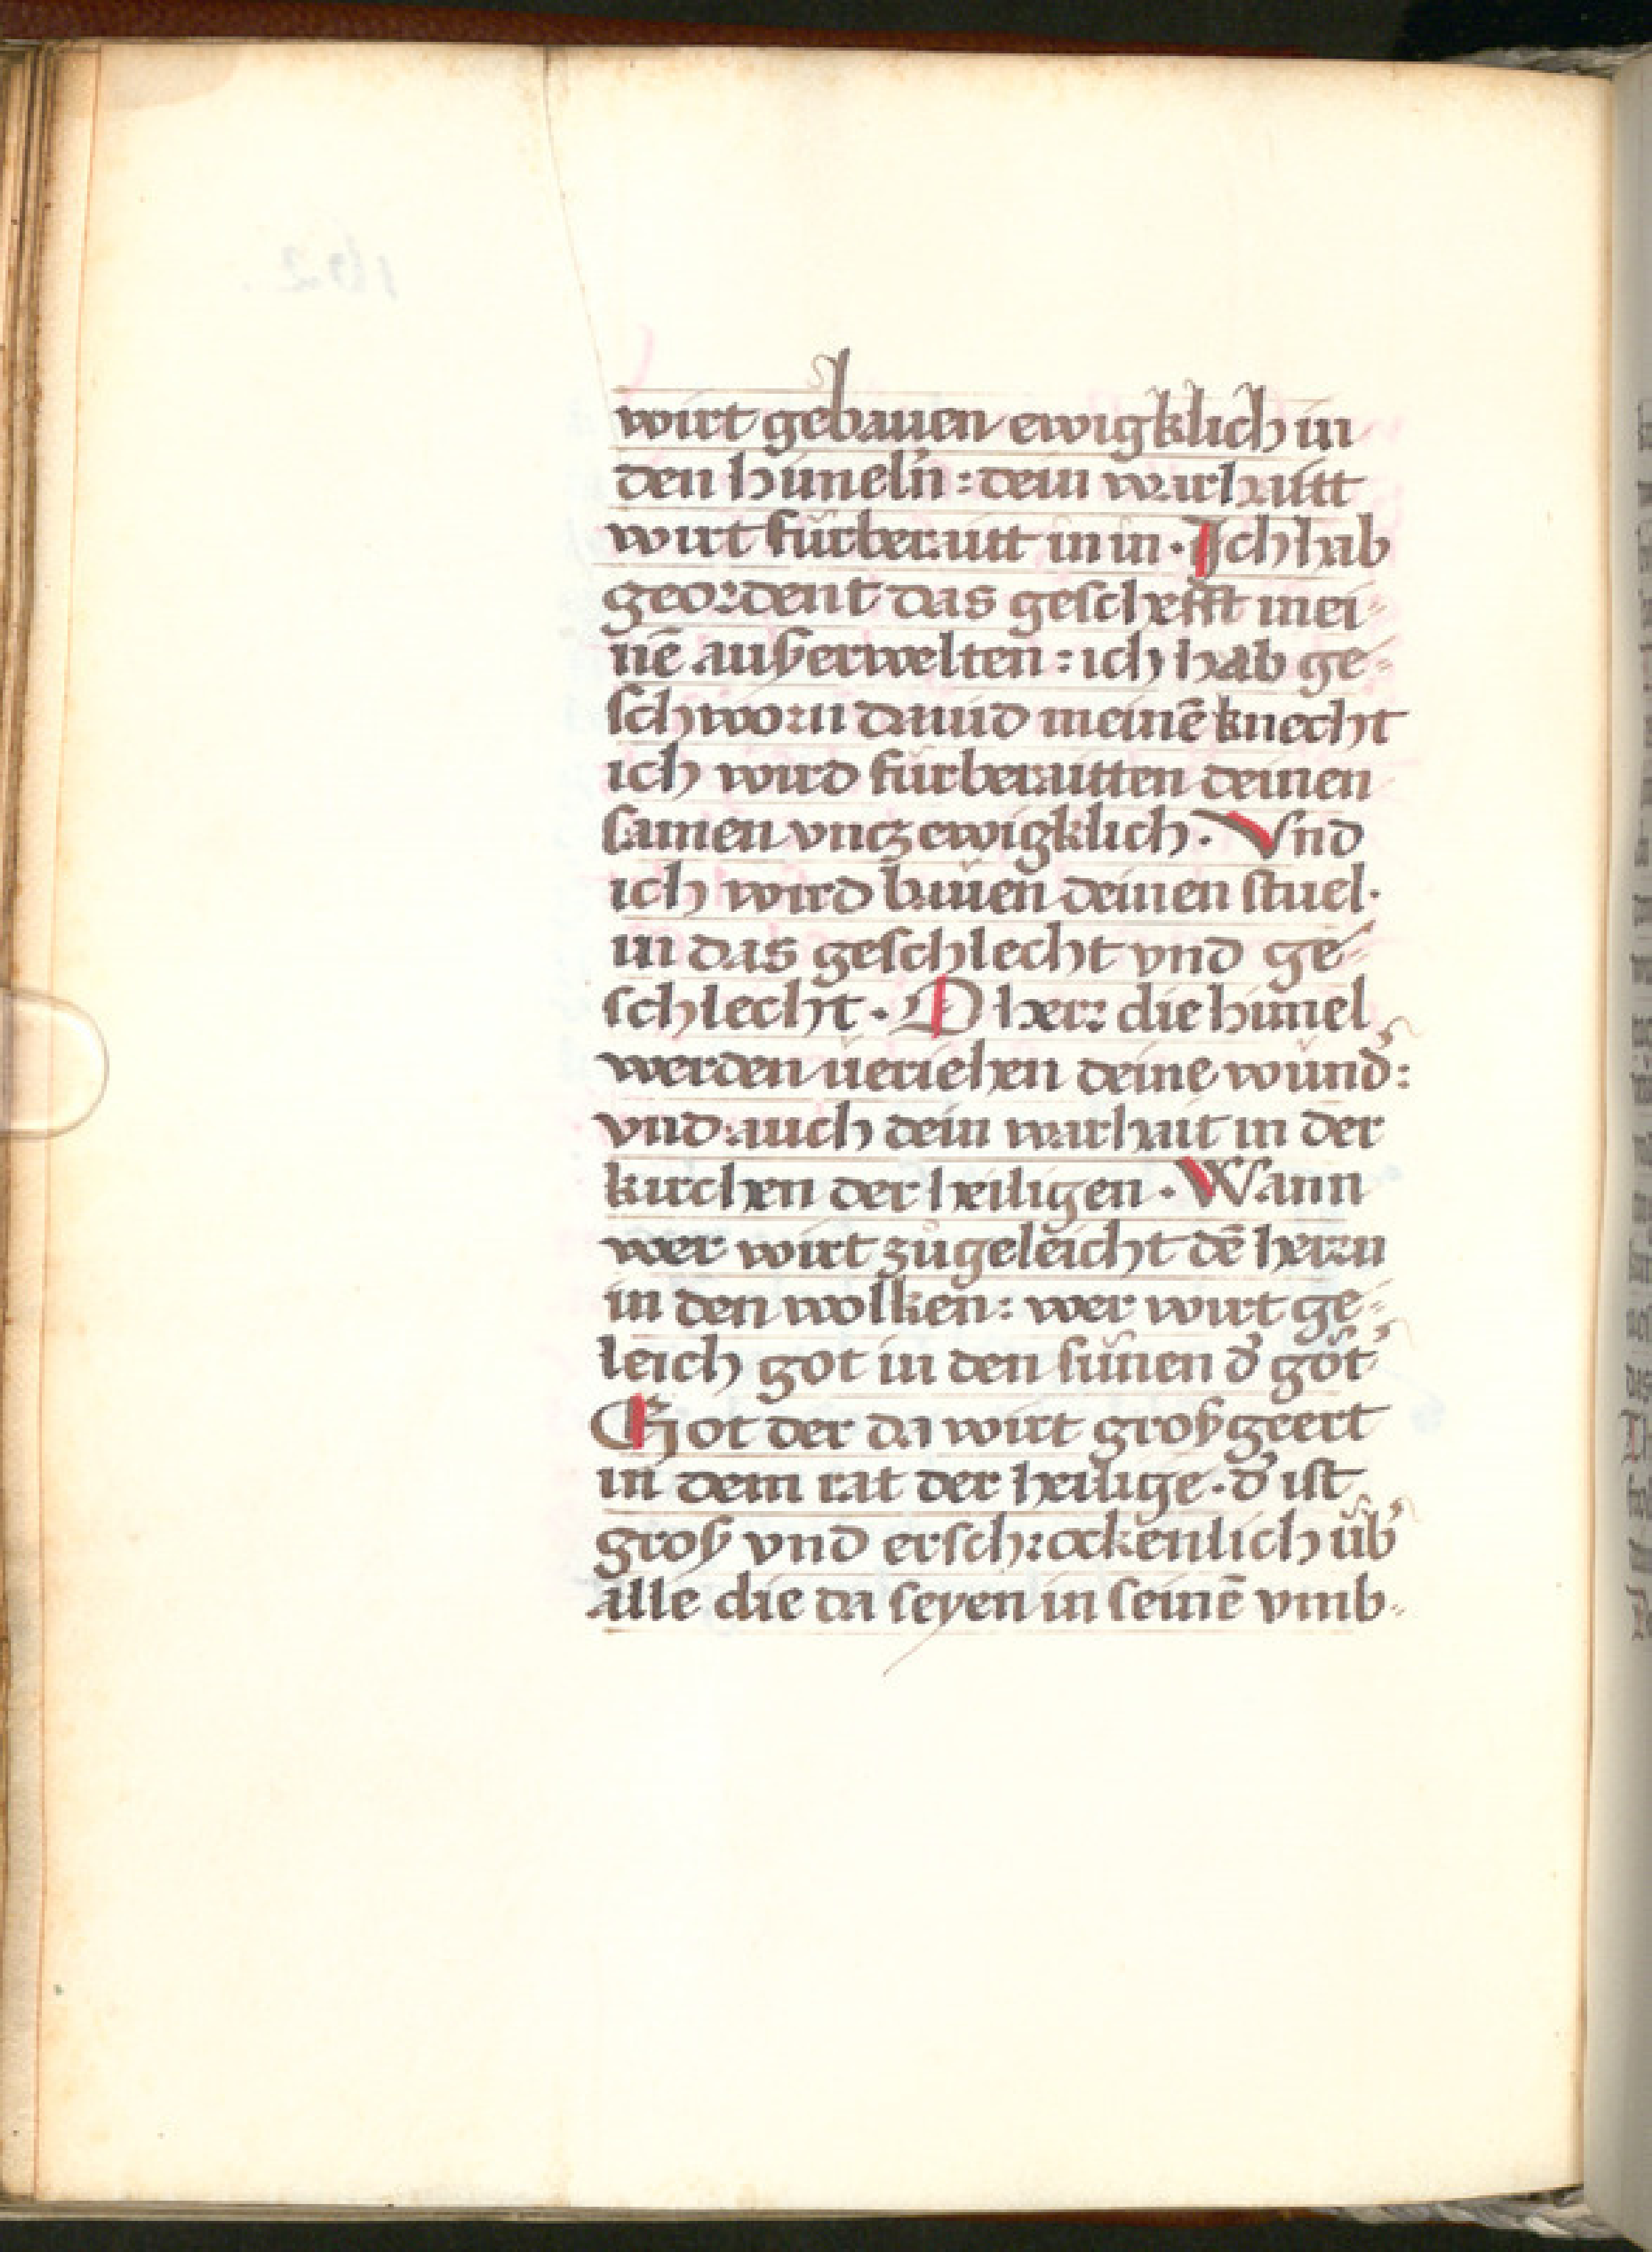 wirt gebauen ewigklich in
den himeln : dein warhaitt
wirt fürberaitt in in · Ich hab
geordent das geschefft mei-
nē außerwelten : ich hab ge-
schworn dauid meinē knecht
ich wird fürberaitten deinen
samen vncz ewigklich · Vnd
ich wird bauen deinen stuel ·
in das geschlecht vnd ge-
schlecht · O herr die himel
werden veriehen deine wund̕ :
vnd auch dein warhait in der
kirchen der heiligen · Wann
wer wirt zůgeleicht dē herrn
in den wolken : wer wirt ge-
leich got in den sünen d̕ göt̕
Got der da wirt großgeert
in dem rat der heilige · d̕ ist
groß vnd erschrockenlich üb̕
alle die da seyen in seinē vmb-